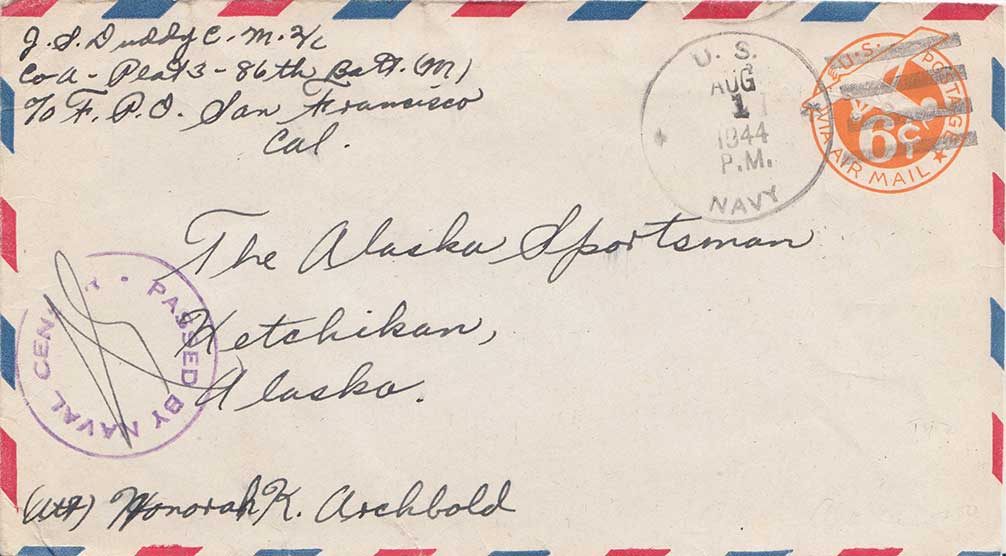 J. S. Duddy C. M. 2/c
Co A - Plat 3 - 86th Batt. (M)
% F. P. O. San Francisco
Cal.
U. S.
AUG
1
1944
P.M.
NAVY
U.S. POSTAGE
6¢
VIA AIR MAIL
The Alaska Sportsman
Ketchikan,
Alaska.
PASSED BY NAVAL CENSOR
(Att) Honorah K. Archbold